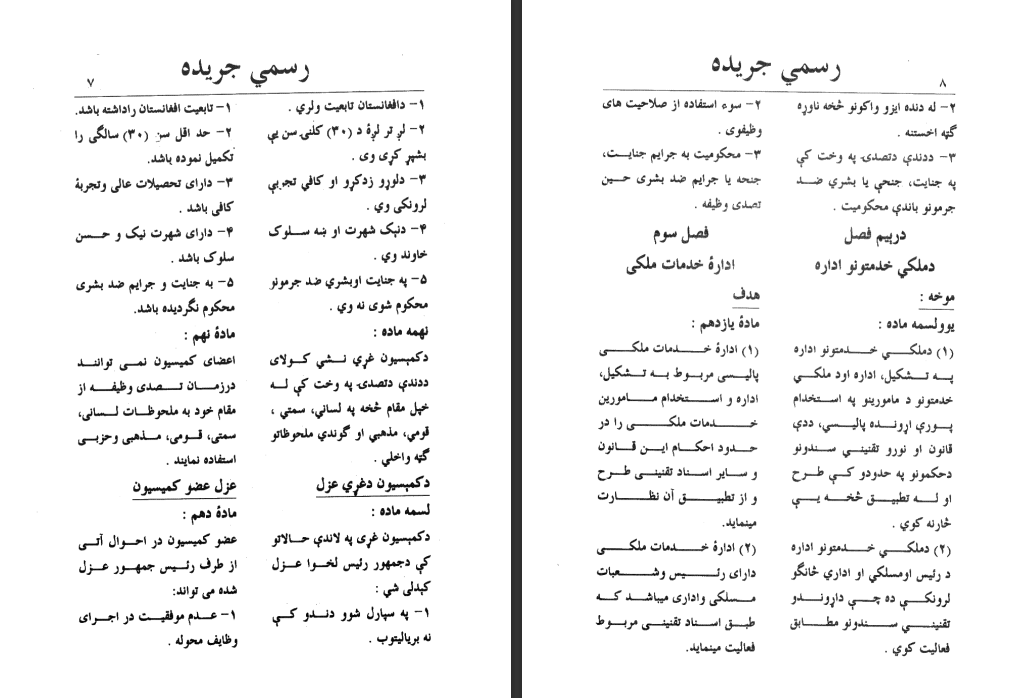 رسمي جریده
۷
۱- دافغانستان تابعیت ولري .
۲- لږ تر لږۀ د (۳۰) کلنۍ سن یې
بشپړ کړی وی .
۳- دلوړو زدکړو او کافي تجربې
لرونکی وي .
۴- دنېک شهرت او ښه سلوک
خاوند وي .
۵- په جنایت اوبشري ضد جرمونو
محکوم شوی نه وي .
نهمه ماده :
دکمېسیون غړي نشي کولای
ددندې دتصدۍ په وخت کې له
خپل مقام څخه په لساني، سمتي ،
قومي، مذهبي او گوندي ملحوظاتو
گټه واخلي .
دکمېسیون دغړي عزل
لسمه ماده :
دکمېسیون غړی په لاندې حالاتو
کې دجمهور رئیس لخوا عزل
کېدلی شي :
۱- په سپارل شوو دندو کې
نه بریالیتوب .
۱- تابعیت افغانستان راداشته باشد.
۲- حد اقل سن (۳۰) سالگی را
تکمیل نموده باشد.
۳- دارای تحصیلات عالی وتجربۀ
کافی باشد .
۴- دارای شهرت نیک و حسن
سلوک باشد .
۵- به جنایت و جرایم ضد بشری
محکوم نگردیده باشد.
مادۀ نهم :
اعضای کمیسیون نمی توانند
درزمان تصدی وظیفه از
مقام خود به ملحوظات لسانی،
سمتی، قومی، مذهبی وحزبی
استفاده نمایند .
عزل عضو کمیسیون
مادۀ دهم :
عضو کمیسیون در احوال آتی
از طرف رئیس جمهور عزل
شده می تواند:
۱- عدم موفقیت در اجرای
وظایف محوله .
رسمي جریده
۸
۲- له دنده ایزو واکونو څخه ناوړه
گټه اخستنه .
۳- ددندې دتصدۍ په وخت کې
په جنایت، جنحې یا بشري ضد
جرمونو باندې محکومیت .
درېیم فصل
دملکي خدمتونو اداره
موخه :
یوولسمه ماده :
(۱) دملکي خدمتونو اداره
په تشکیل، اداره اود ملکي
خدمتونو د مامورینو په استخدام
پورې اړونده پالیسي، ددې
قانون او نورو تقنیني سندونو
دحکمونو په حدودو کې طرح
او له تطبیق څخه یې
څارنه کوي .
(۲) دملکي خدمتونو اداره
د رئیس اومسلکي او اداري څانگو
لرونکې ده چې داړوندو
تقنیني سندونو مطابق
فعالیت کوي .
۲- سوء استفاده از صلاحیت های
وظیفوی .
۳- محکومیت به جرایم جنایت،
جنحه یا جرایم ضد بشری حین
تصدی وظیفه .
فصل سوم
ادارۀ خدمات ملکی
هدف
مادۀ یازدهم :
(۱) ادارۀ خدمات ملکی
پالیسی مربوط به تشکیل،
اداره و استخدام مامورین
خدمات ملکی را در
حدود احکام این قانون
و سایر اسناد تقنینی طرح
و از تطبیق آن نظارت
مینماید.
(۲) ادارۀ خدمات ملکی
دارای رئیس وشعبات
مسلکی واداری میباشد که
طبق اسناد تقنینی مربوط
فعالیت مینماید.